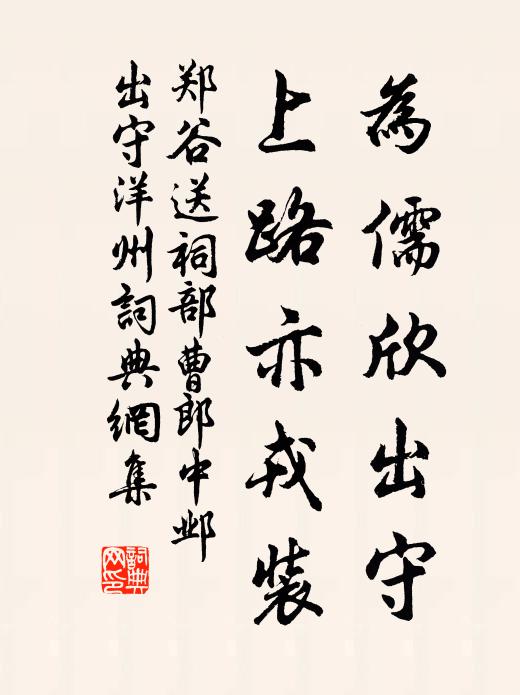 為儒欣出守
上路亦戎裝
郑谷送祠部曹郎中邺
出守洋州詞典網集
詞典網印